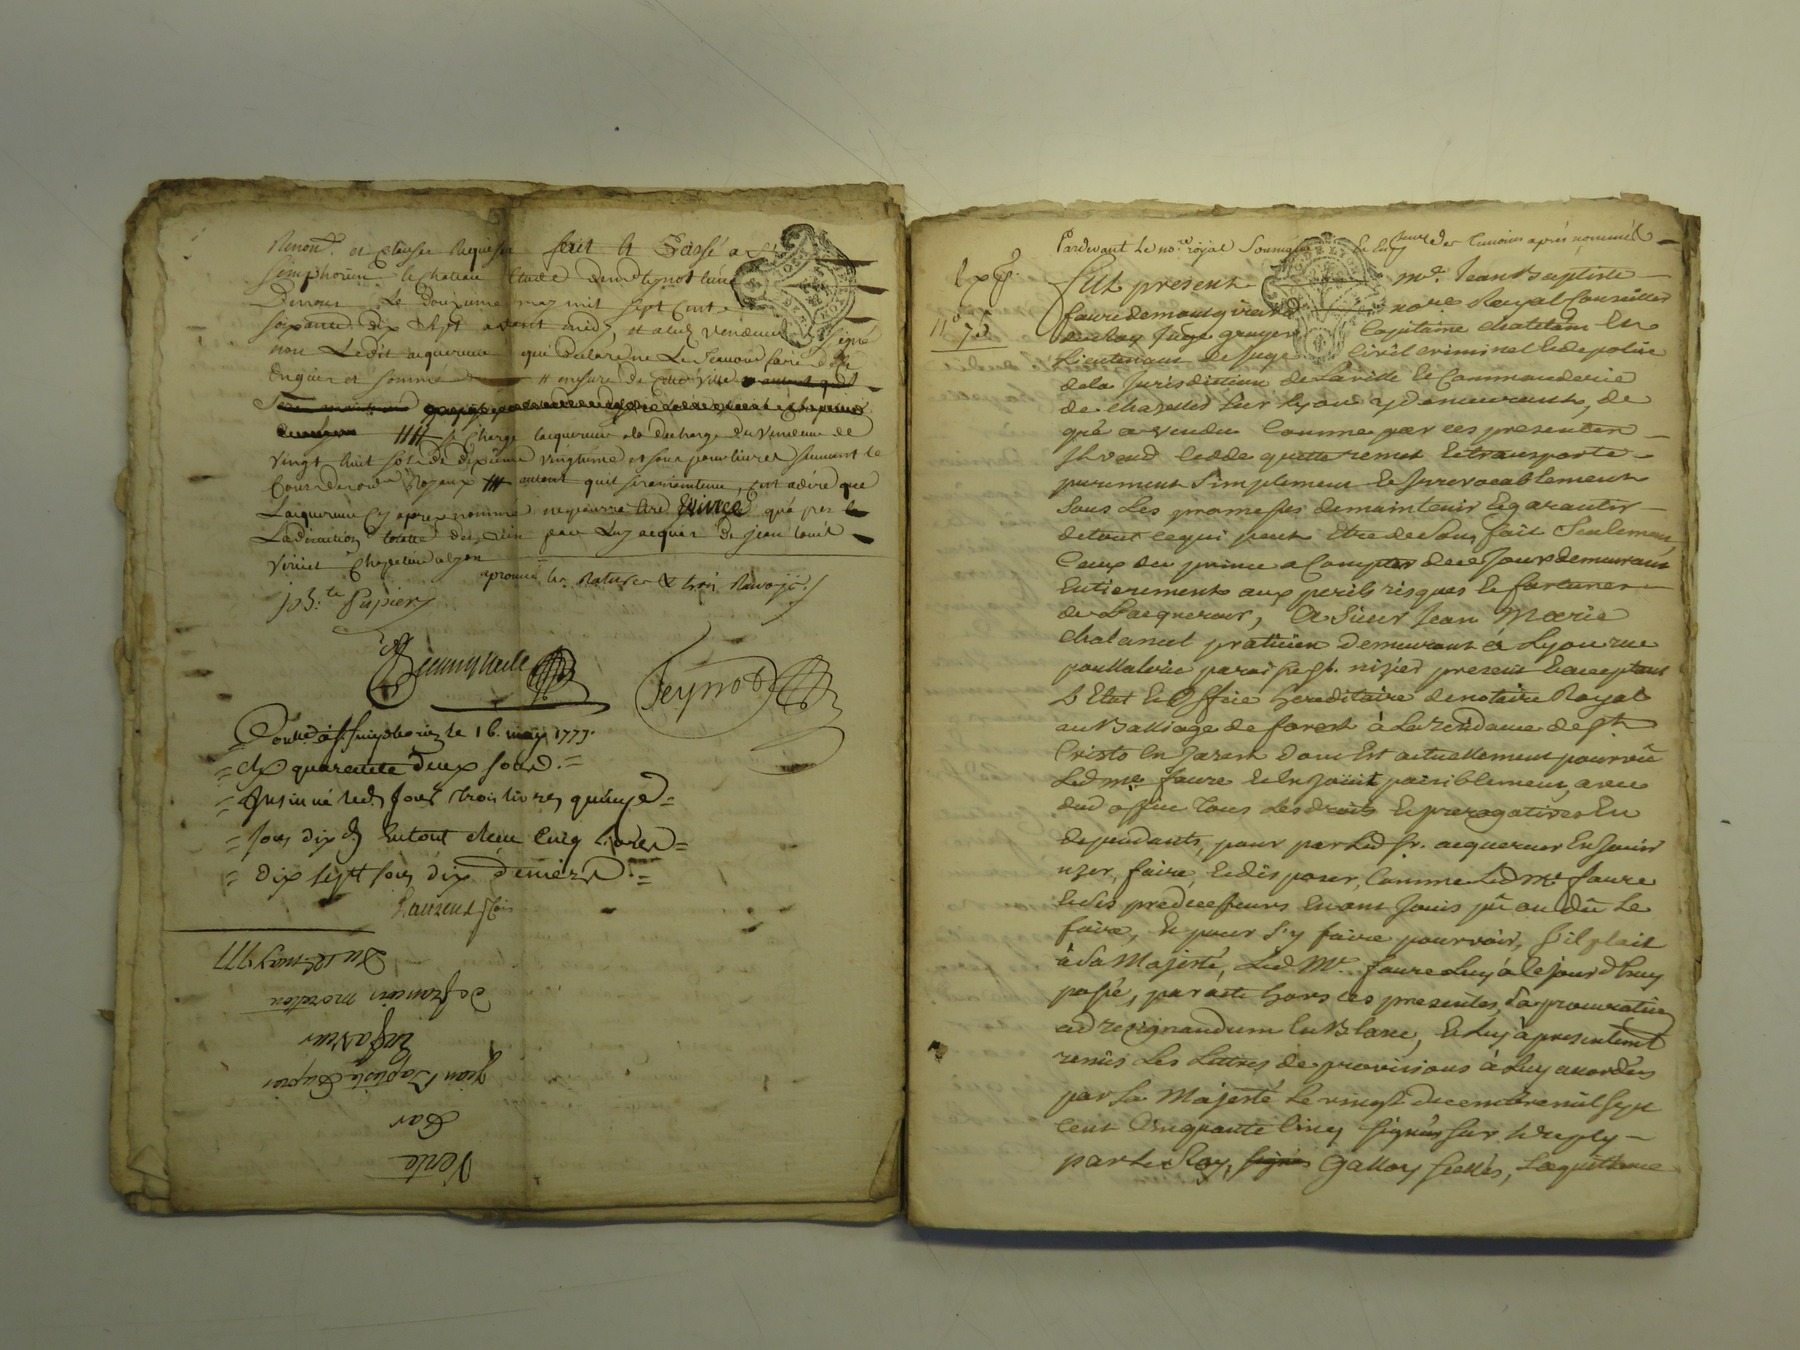 Renon.on et clauses Requises fait & Passé a St
simphorien le chateau Etude
Le Douzieme may mil sept cent
soixante dix sept avant midy, et a led. vendeur signé
non Ledit acquereur qui a declaré ne Le scavoir faire de ce
Enquis et sommé # mesure de cette ville
# a la Charge lacquereur a la decharge du vendeur de
vingt huit sols de dixieme vingtieme et sous pour livres suivant le
Cours des Royaux # autant quil sera maintenu, cest adire que
Lacquereur Cy apres nommé ne pourra etre Evincé qu'a par le
jean louis
approuvé les Ratures & trois Renvois
jos: te Pupier
Peynot
Contlé a st simphorien le 16. may 1777.
= quarente deux sols. =
= Insinué led. jour trois livres quinze =
= sols dix d. En tout Receu Cinq Livres =
= dix sept sols dix deniers. =
Laurenson
Vente
Par
Jean Baptiste Pupier
En faveur
de françois
Du 12 may 1777
Pardevant Le no.re royal Soussigné et En presence des Temoins après nommés
Exp.
11# 7s
fut present m.e Jean Baptiste
faure demontgirard no.re Royal Conseiller
du Roy Juge gruyer Capitaine chatelain En
Lieutenant de Juge Civil criminel & de police
de la Jurisdiction de La ville & Commanderie
de chazelles sur Lyon y demeurant, de
gré a vendu Comme par ces presentes
Il vend cedde quitte remet & transporte
purement simplement & Irrevocablement
sous Les promesses de maintenir & garantir
de tout ce qui peut Etre de son fait Seulement,
Ceux du prince a Compter de ce Jour demeurant
Entierement aux perils risques & fortunes
de L'acquereur, A Sieur Jean Marie
chatanel praticien Demeurant à Lyon rue
poullalerie paroisse St. nizier present & acceptant
L'Etat & Office hereditaire de notaire Royal
au Balliage de forest à La residance de St
Cristo En Jarest dont Est actuellement pourvû
Led. m.e faure & En Jouit paisiblement, avec
dud. office tous Les droits & prerogatives En
dependants, pour par Led. Sr. acquereur En Jouir
uzer, faire, & disposer, Comme Led. M.e faure
& ses predecesseurs En ont Jouis pû ou dû Le
faire, & pour s'y faire pourvoir, s'il plait
à Sa Majesté, Led. M.e faure Luy à Ce jourdhuy
passé, par acte hors ces presentes, La procuration
ad resignandum En Blanc, & Luy à presentement
remis Les Lettres de provisions à Luy accordées
par Sa Majesté Le vingt decembre mil sept
cent Cinquante Cinq signées sur Le reply
par Le Roy, Gallois scellés, La quittance